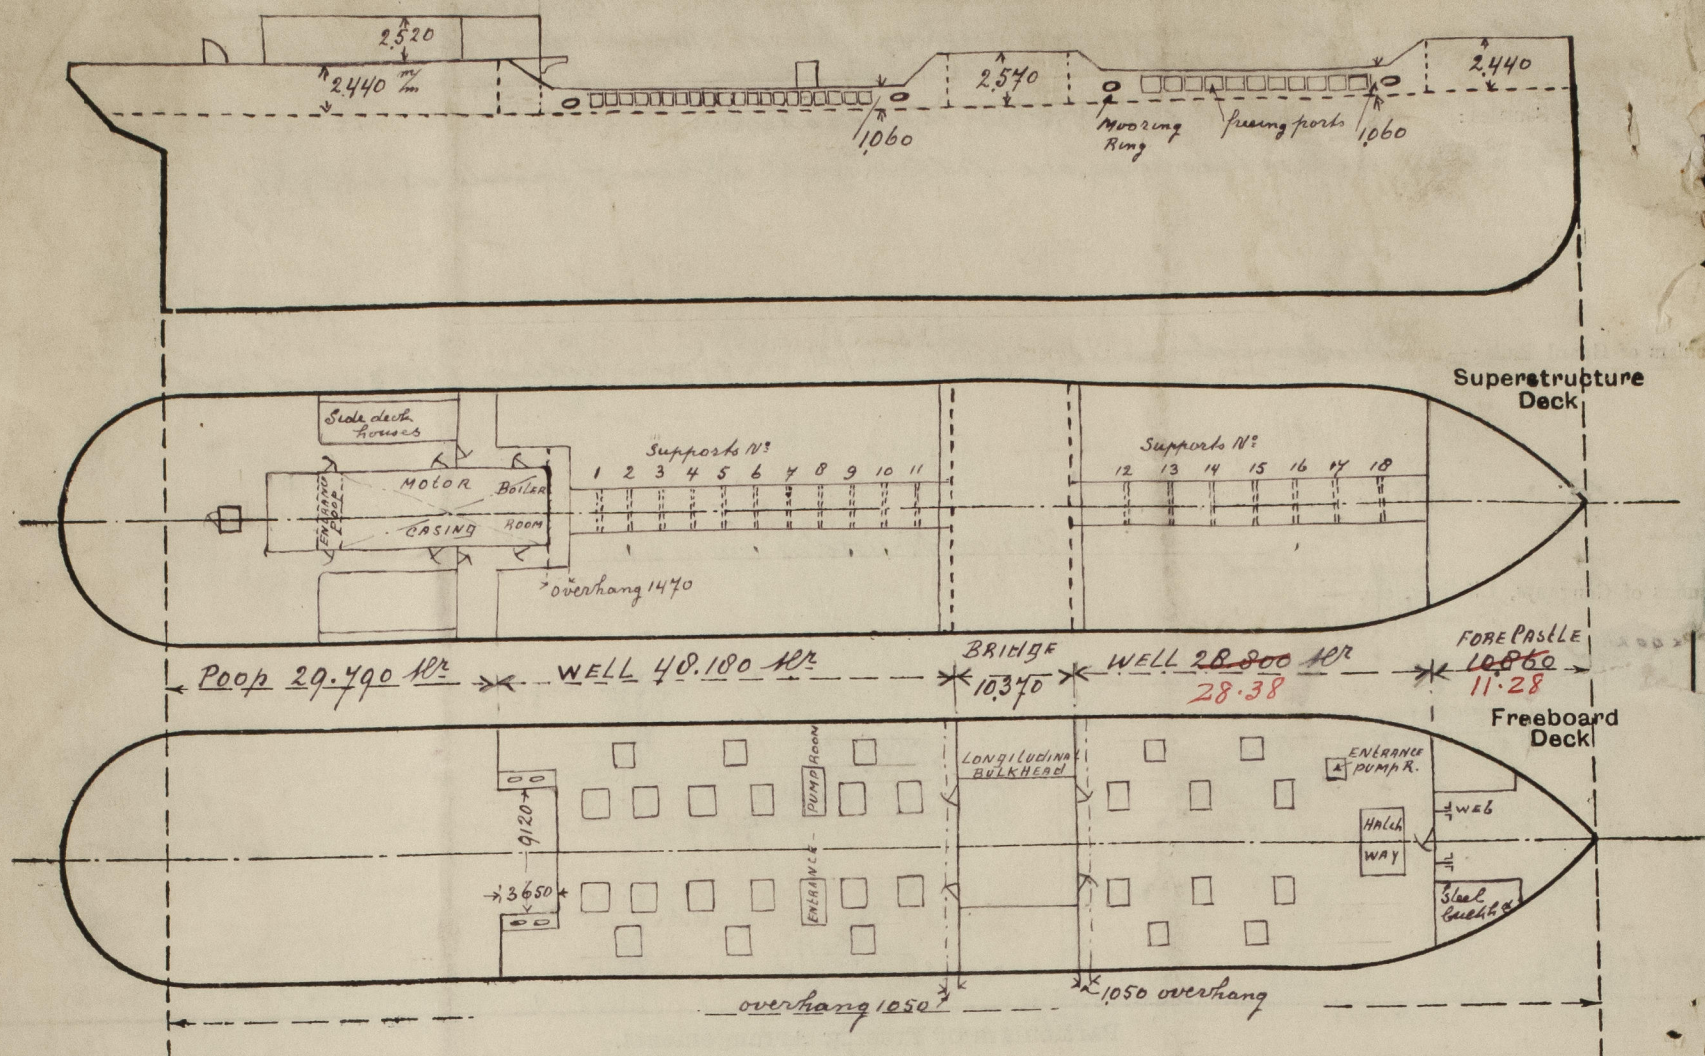 2.520
2.440 m/m
2.570
2.440
1.060
Mooring
Ring
freeing ports
1.060
Superstructure
Deck
Side deck
houses
Supports Nº
1 2 3 4 5 6 7 8 9 10 11
Supports Nº
12 13 14 15 16 17 18
ENTRANC
POOP
MOTOR
CASING
BOILER
ROOM
overhang 1470
Poop 29.790 Mr
WELL 48.180 Mr
BRIDGE
10.370
WELL 28.800 Mr
28.38
FORECASTLE
10.860
11.28
Freeboard
Deck
PUMPROOM
ENTRANCE
LONGITUDINAL
BULKHEAD
ENTRANCE
PUMP R.
9120
3650
HATCH
WAY
WEB
Steel
bulkhd
overhang 1050
1050 overhang